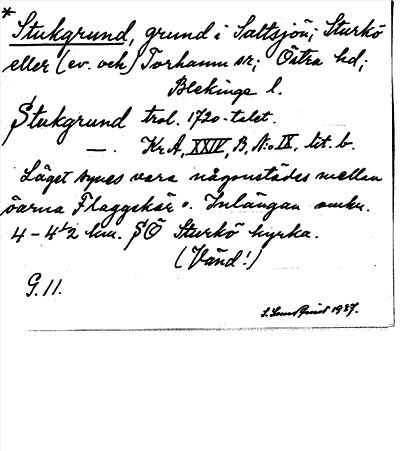 *
Stukgrund, grund i Saltsjön; Sturkö
eller (ev. och) Torhamn sn; Östra hd;
Blekinge l.
Stukgrund trol. 1720-talet.
—. Kr A, XXIV, B, No IX, lit. b.
Läget synes vara någonstädes mellan
öarna Flaggskär o. Inlängan omkr.
4 - 4½ km. SÖ Sturkö kyrka.
(Vänd!)
G. 11.
1937.